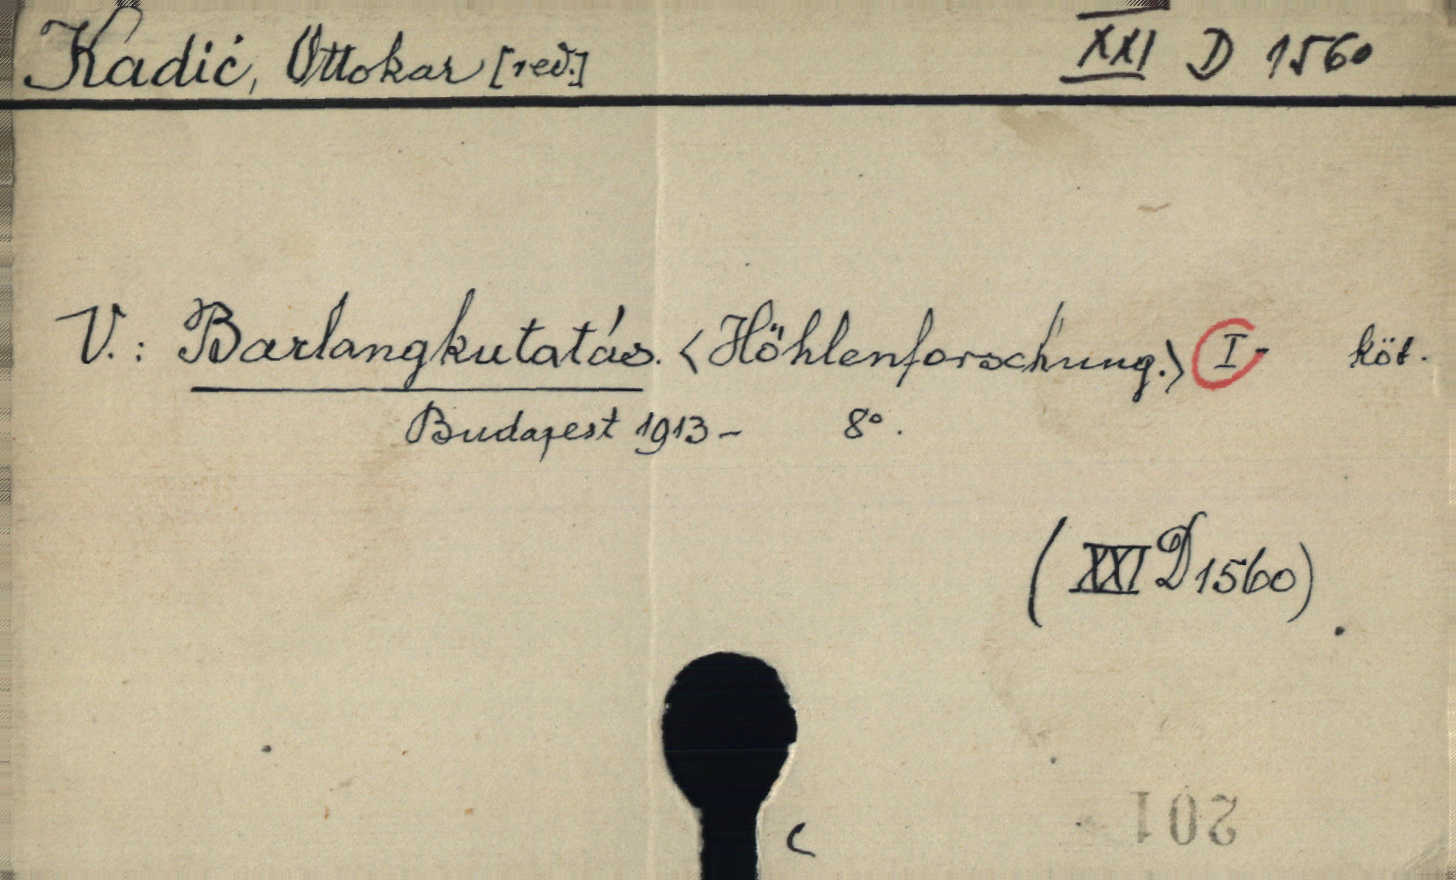 Kadić, Ottokar [red.] XXI D 1560
V.: Barlangkutatás. <Höhlenforschung.> I- köt.
Budapest 1913- 8º.
(XXI D 1560)
201